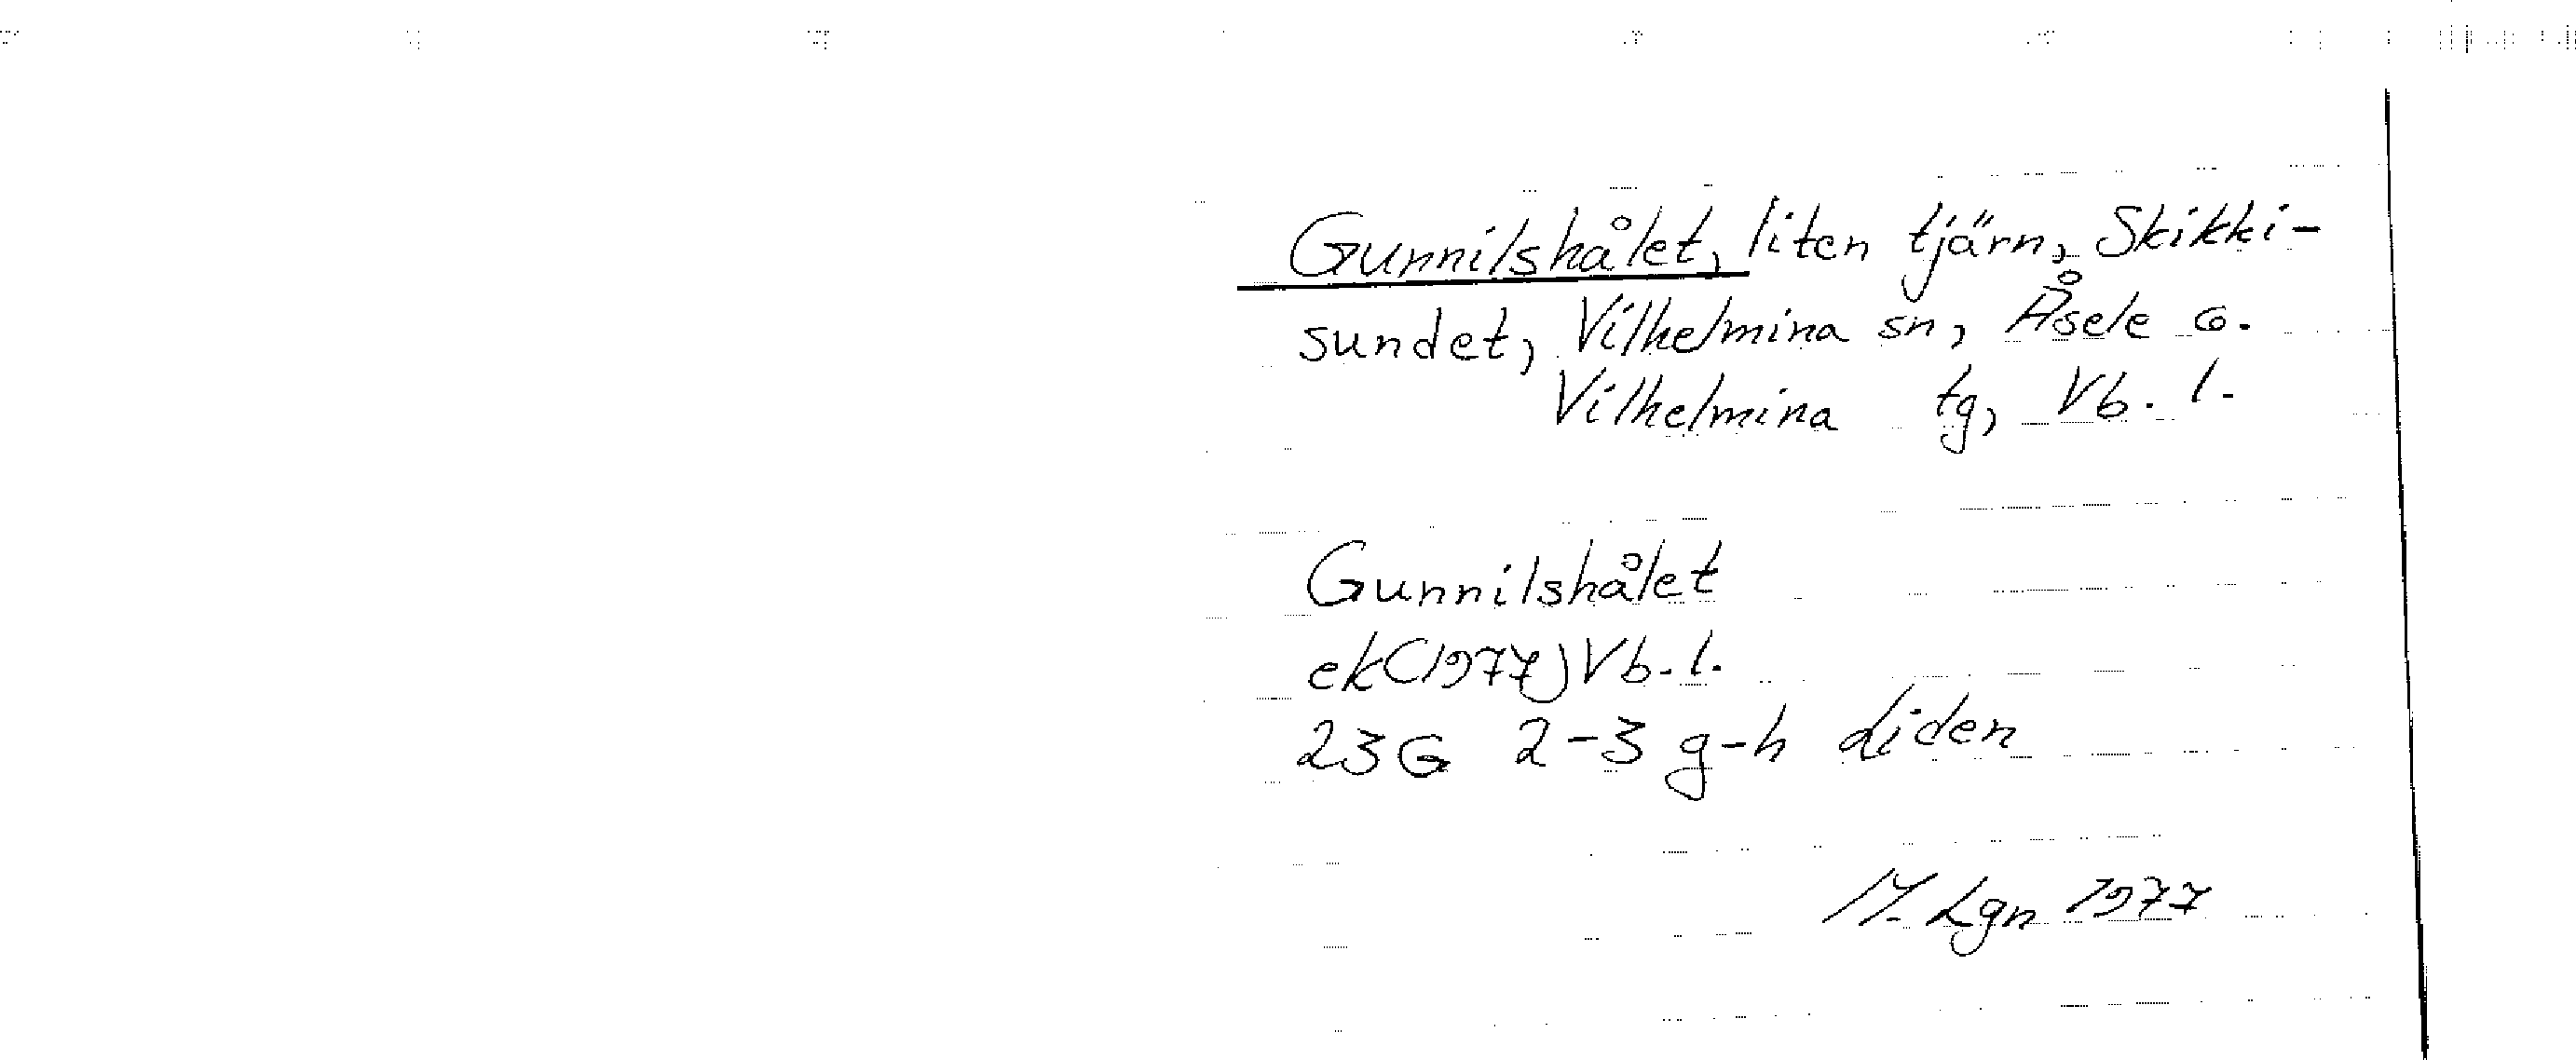 Gunnilshålet, liten tjärn, Skikki-
sundet, Vilhelmina sn, Åsele G.
Vilhelmina tg, Vb. l.
Gunnilshålet
ek(1977)Vb. l.
23G 2-3 g-h Liden
M. Lgn 1977